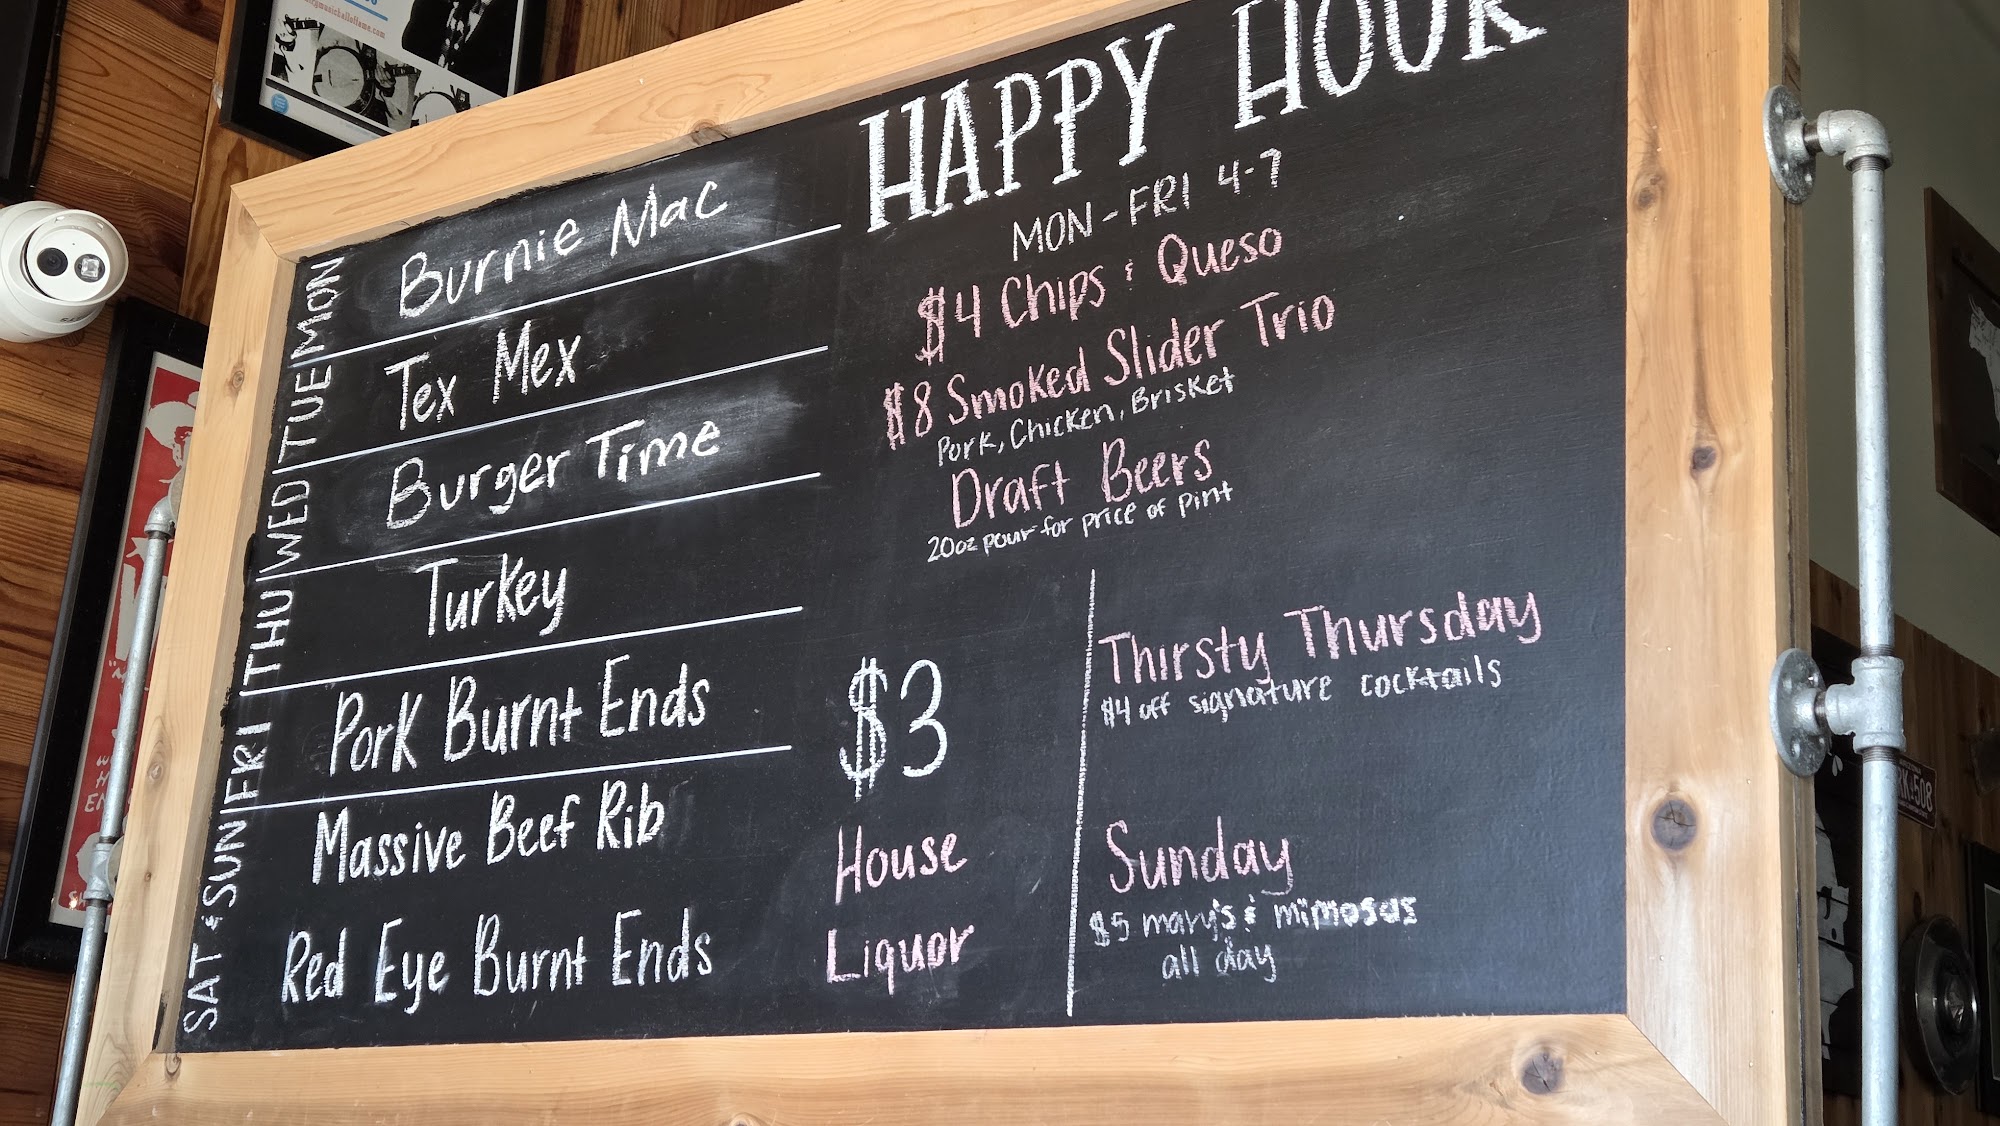 HAPPY HOUR
MON-FRI 4-7
$4 Chips & Queso
$8 Smoked Slider Trio
Pork, Chicken, Brisket
Draft Beers
20oz pour for price of pint
MON Burnie Mac
TUE Tex Mex
WED Burger Time
THU Turkey
FRI Pork Burnt Ends
SAT & SUN Massive Beef Rib
Red Eye Burnt Ends
$3
House
Liquor
Thirsty Thursday
$4 off signature cocktails
Sunday
$5 mary's & mimosas
all day